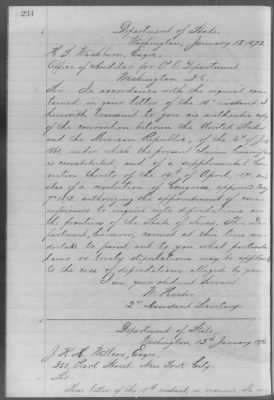 234
Department of State,
Washington, January 13 1872.
Esqre.
Office of Auditor for P.O. Department,
Washington D.C.
Sir: In accordance with the request con-
tained in your letter of the 10th instant I
herewith transmit to you an authentic copy
of the convention between the United States
and the Mexican Republic, of the 4th of July
1868, under which the present claims
is constituted, and of a supplemental Con-
vention thereto of the 19th of April, 1871 and
also of a resolution of Congress, approved May
7th 1872, authorizing the appointment of com-
missioners to inquire into depredations on
the frontiers of the State of Texas. The De-
partment, however, cannot at this time un-
dertake to point out to you what particular
laws or treaty stipulations may be applicable
to the case of depredations alleged by you.
I am, your obedient servant
W. Hunter.
2nd Assistant Secretary.
Department of State,
Washington, 13th January 1873
J. K. H. Willcox, Esqre.
Pearl Street, New York City.
Sir:
Your letter of the 10th instant is received.